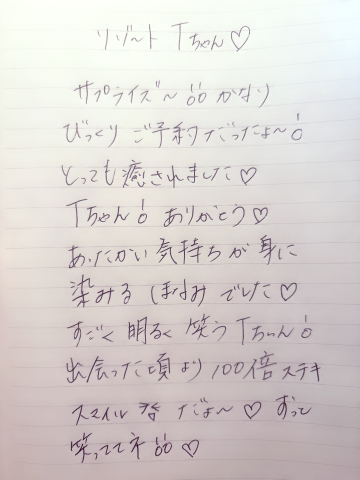 リゾート Tちゃん♡
サプライズ〜!!! かなり
びっくり ご予約だったよ〜!
とっても癒されました♡
Tちゃん! ありがとう♡
あったかい気持ちが身に
染みる ほほえみでした♡
すごく明るく笑うTちゃん!
出会った頃より100倍ステキ
スマイル だよ〜♡ ずっと
笑っててネ!!!♡